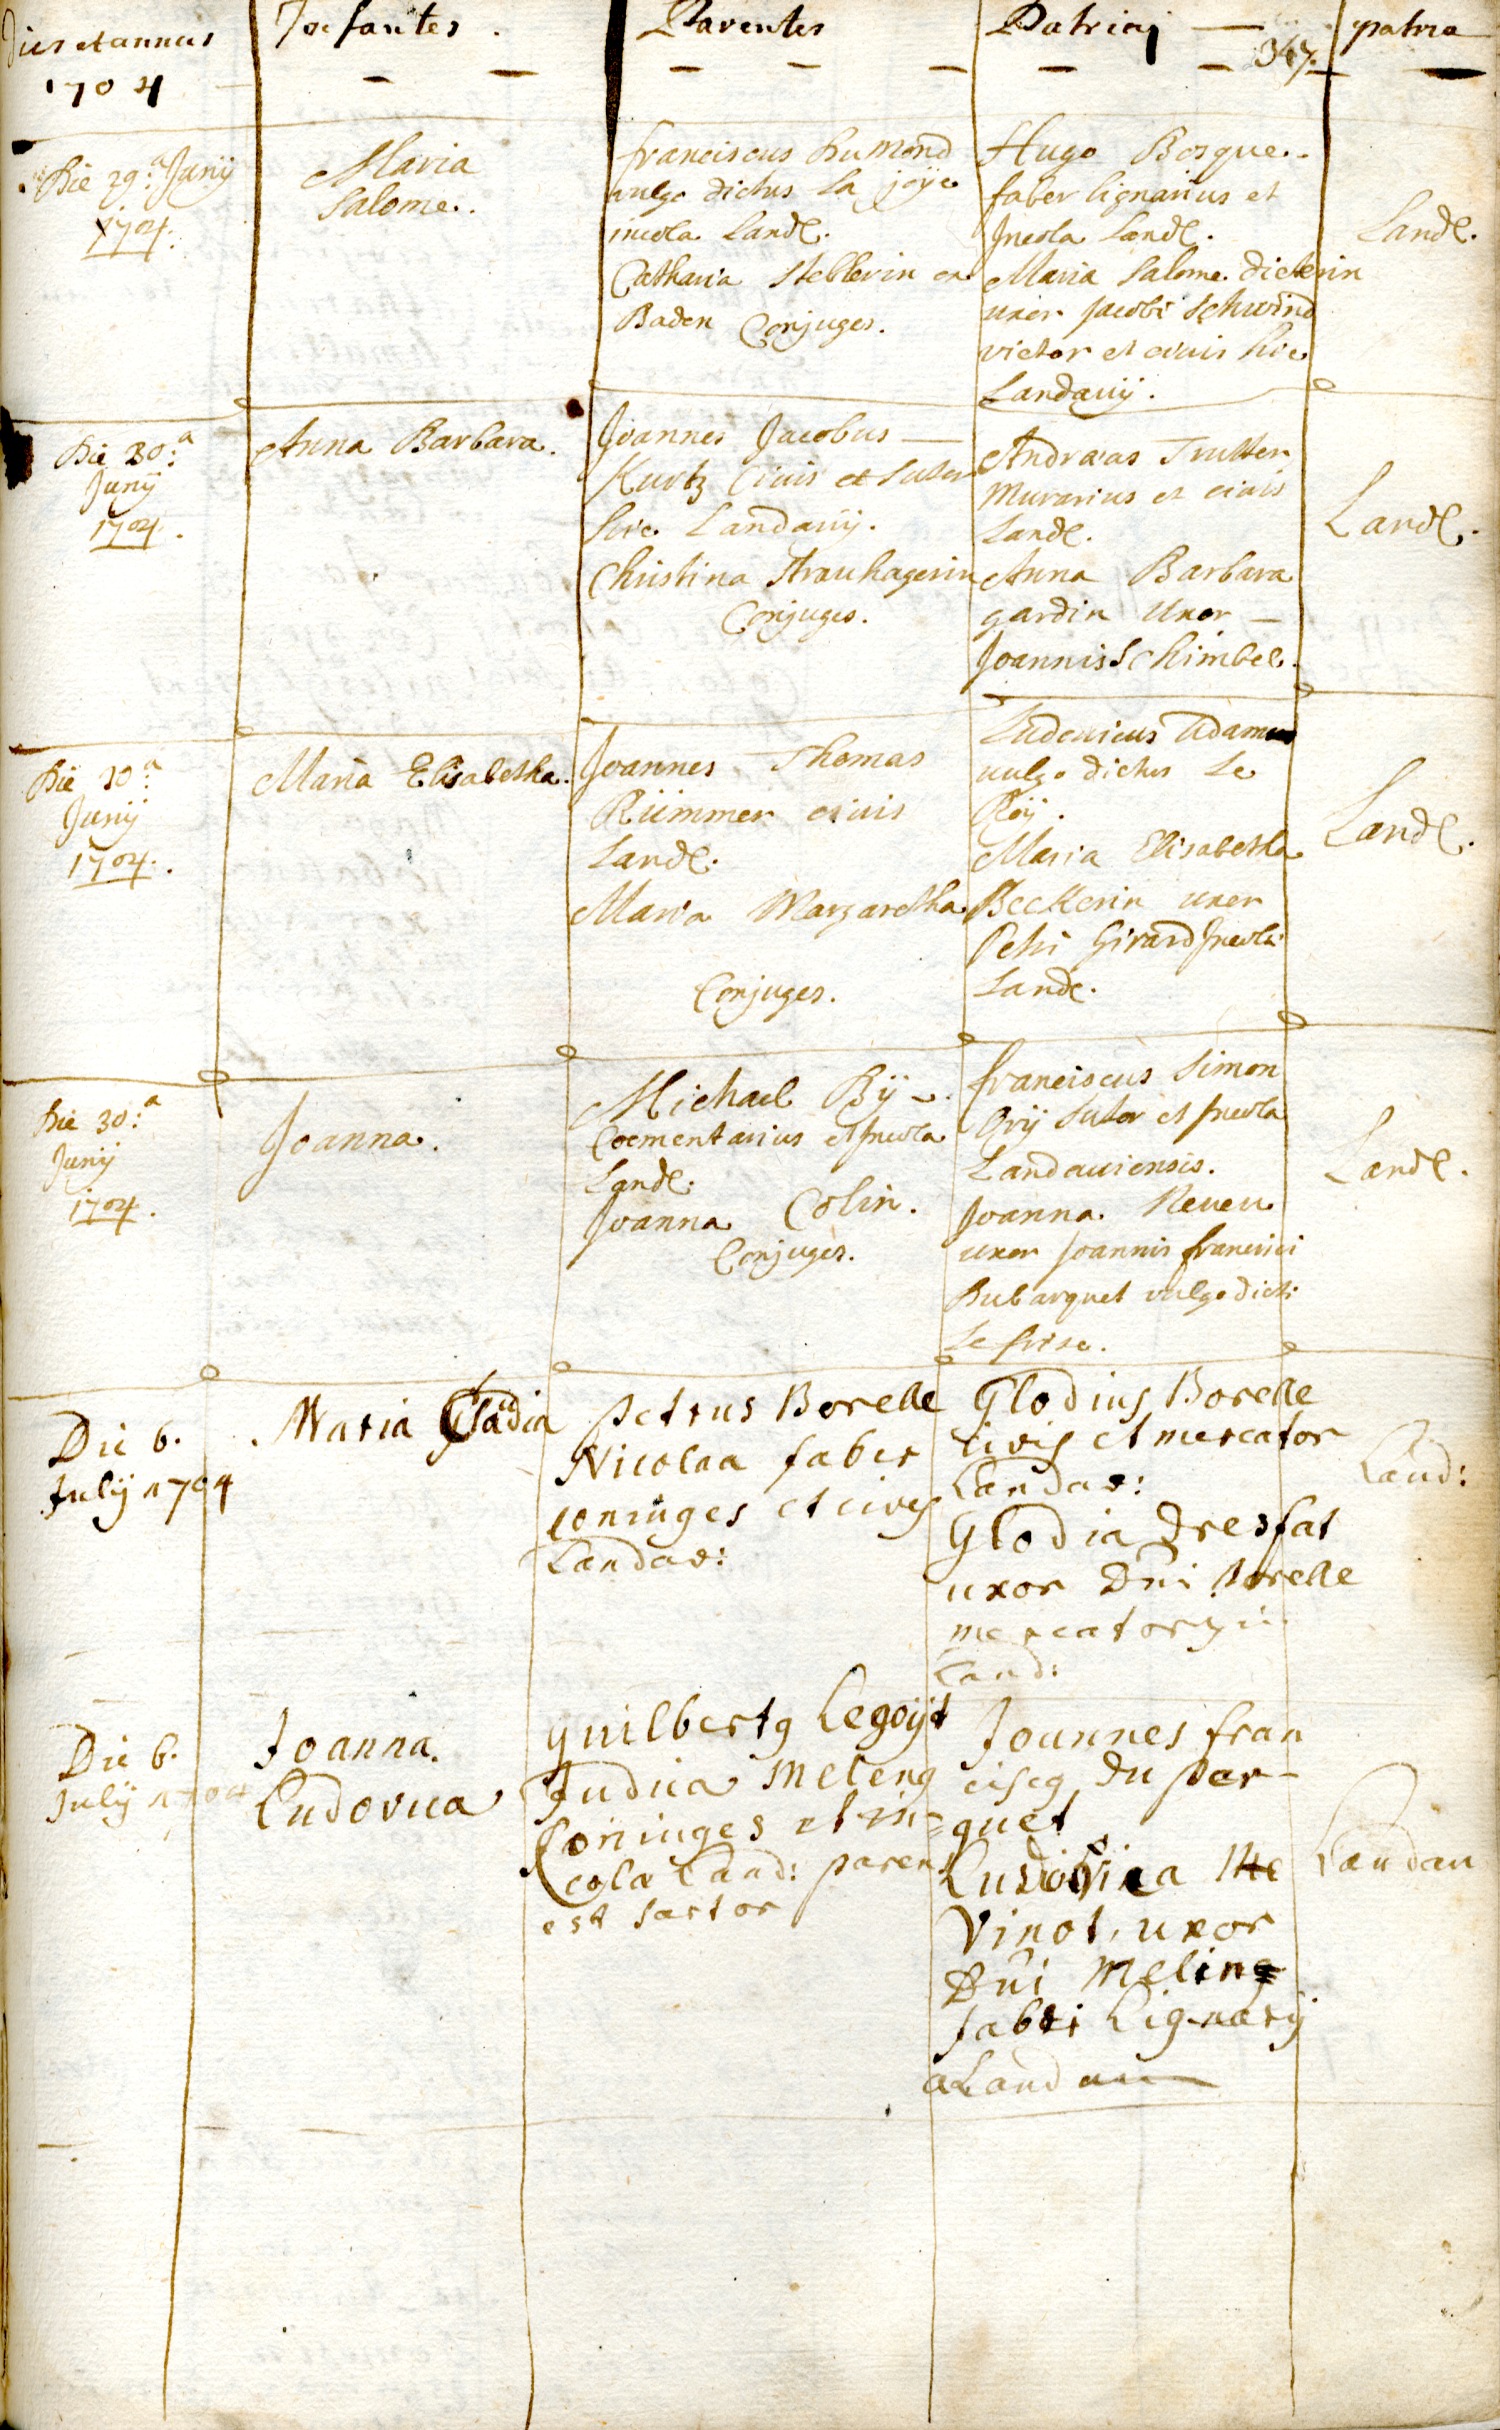 Dies et annus
1704
Infantes.
Parentes
Patrini
347.
patria
Die 29.a Junij
1704.
Maria
Salome.
franciscus Humond
vulgo dictus La joÿe
incola Land.
Catharia Steblerin ex
Baden Conjuges.
Hugo Bosque.
faber lignarius et
Incola Land.
Maria Salome dieterin
uxor Jacobi Schwind
victor et civis hic
Landavij.
Land.
Die 30.a
Junij
1704.
Anna Barbara.
Joannes Jacobus
Kurtz Civis et Sutor
hic Landavij.
Christina Strauhagerin
Conjuges.
Andreas Trutter
Murarius et civis
Land.
Anna Barbara
gardin Uxor
Joannis Schimbel.
Land.
Die 30.a
Junij
1704.
Maria Elisabetha.
Joannes Thomas
Rümmer civis
Land.
Maria Margaretha
Conjuges.
Ludovicus Adamus
vulgo dictus Le
Roÿ.
Maria Elisabetha
Beckerin uxor
Petri Girard Incola
Land.
Land.
Die 30.a
Junij
1704.
Joanna.
Michael Bÿ
Coementarius et Incola
Land.
Joanna Colin.
Conjuges.
franciscus Simon
Orij Sutor et Incola
Landaviensis.
Joanna Neveu
uxor Joannis francisci
Bubarquet vulgo dicti
Le frise.
Land.
Die 6.
Julij 1704
Maria Cladia
petrus Borelle
Nicolaa faber
coniuges et cives
Landav:
Glodius Borelle
civis et mercator
Landav:
Glodia Dresfat
uxor Dni Borelle
mercatoris in
Land:
Land:
Die 6.
Julij 1704
Joanna
Ludovica
guilbertg Legoÿt
Judica Meleng
Coniuges et in=
cola Land: paren
est sartor
Joannes fran
ciscg du par-
quet
Ludovica
Vinot, uxor
Dni Meling
fabri Lignarij
a Landau
Landau